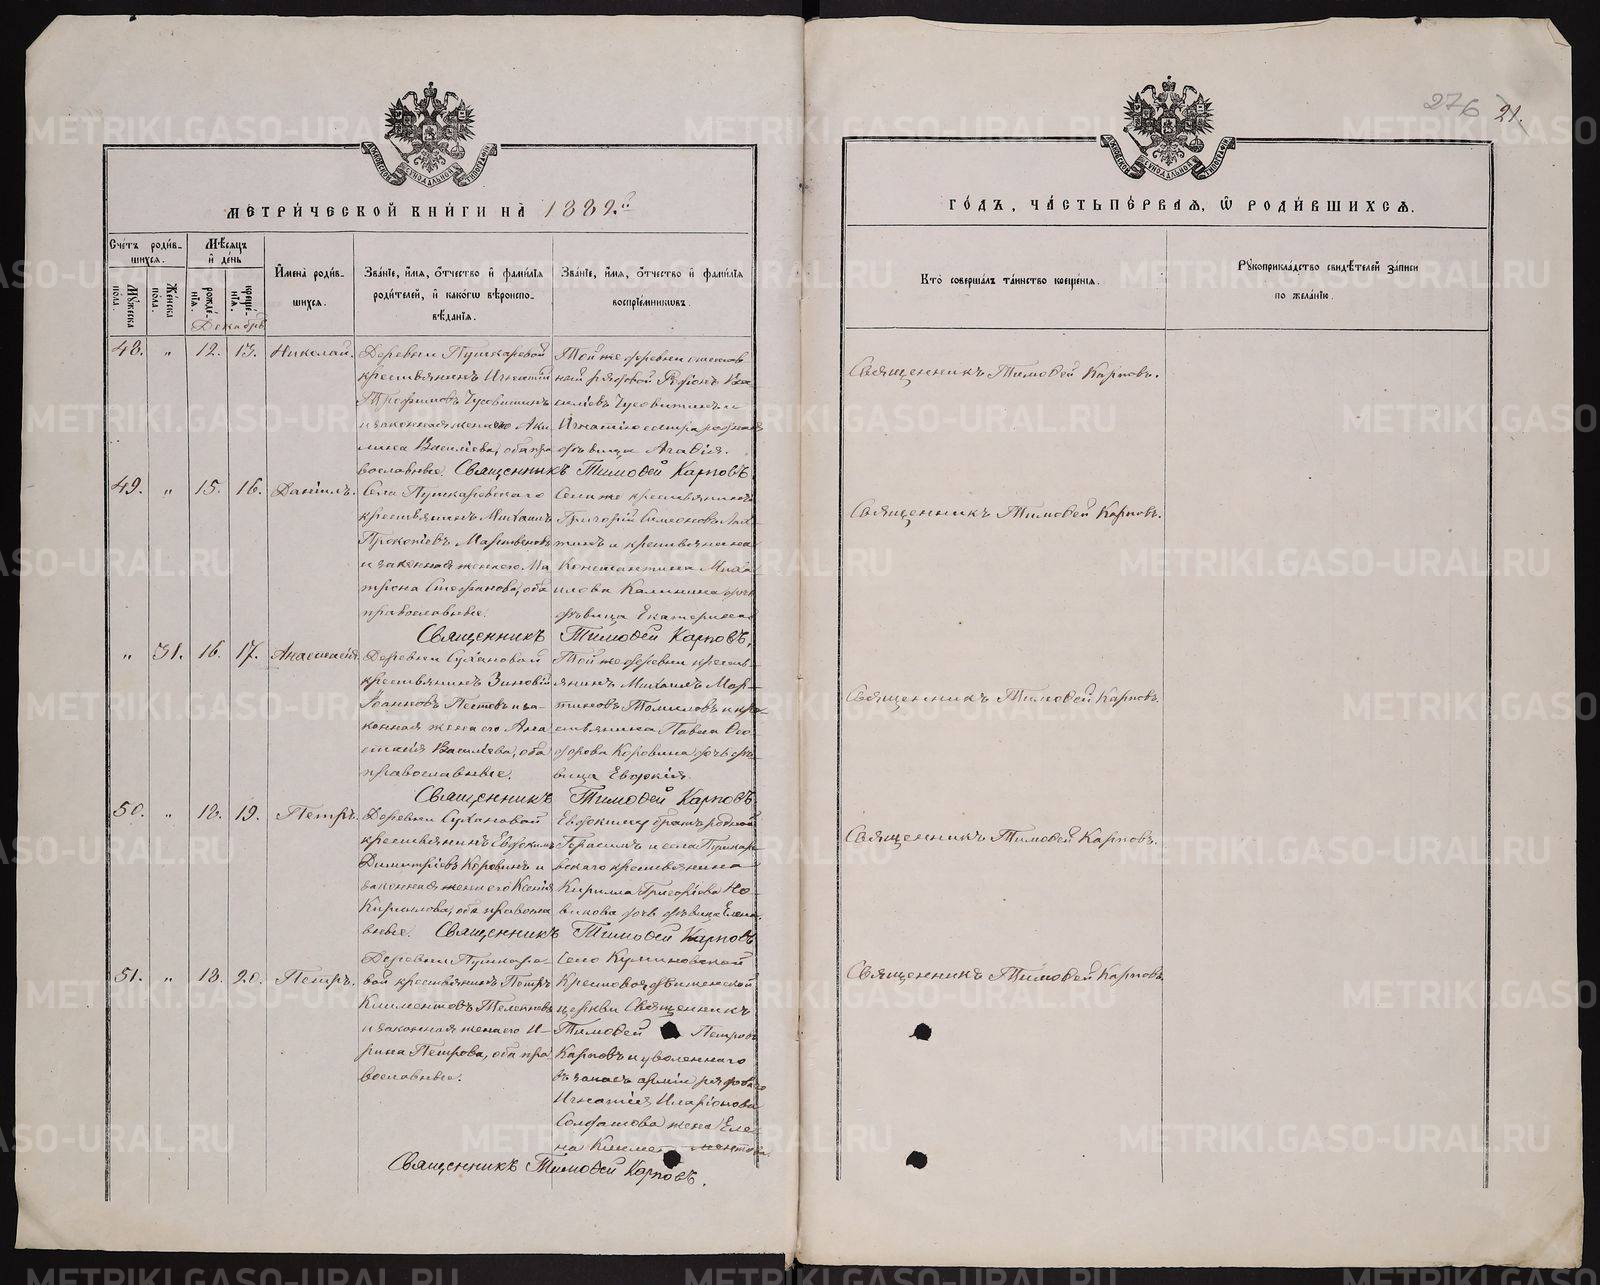 276 21.
МОСКОВСКОЙ СѴНОДАЛЬНОЙ ТИПОГРАФІИ
МОСКОВСКОЙ СѴНОДАЛЬНОЙ ТИПОГРАФІИ
МЕТРИ́ЧЕСКОЙ КНИ́ГИ НА 1889.й
ГО́ДЪ, ЧА́СТЬ ПЕ́РВАЯ, Ѡ РОДИ́ВШИХСЯ.
Сче́тъ роди́в-
шихся.
Му́жеска по́ла.
Же́нска по́ла.
Мѣ́сяцъ
и҆ де́нь
рожде́-
нія.
креще́-
нія.
Декабрь
И҆мена̀ роди́в-
шихся.
Зва́ніе, и҆́мя, ѻ҆́тчество и҆ фами́лія
роди́телей, и҆ како́гѡ вѣроиспо-
вѣ́данія.
Зва́ніе, и҆́мя, ѻ҆́тчество и҆ фами́лія
воспріе́мниковъ.
Кто̀ соверша́лъ та́инство креще́нія.
Рꙋкоприкла́дство свидѣ́телей за́писи
по жела́нію.
48. „ 12. 13. Николай.
Деревни Пушкаревой
крестьянинъ Игнатій
Трофимовъ Чусовитинъ
и законная жена его Аки-
лина Васильева, оба пра-
вославные.
Той же деревни
рядовой Родіонъ Ва-
сильевъ Чусовитинъ и
Игнатію сестра родная
дѣвица Агавія.
Священникъ Тимоѳей Карповъ.
Священникъ Тимоѳей Карповъ.
49. „ 15. 16. Даніилъ.
Села Пушкаревскаго
крестьянинъ Михаилъ
Прокопіевъ Мартьяновъ
и законная жена его Ма-
трона Стефанова, оба
православные.
Села же крестьянинъ
Григорій Симеоновъ
и крестьянина
Константина Миха-
илова Калинина дочь
дѣвица Екатерина
Священникъ Тимоѳей Карповъ.
Священникъ Тимоѳей Карповъ.
„ 31. 16. 17. Анастасія.
Деревни Сухановой
крестьянинъ Зиновій
Іоанновъ Пестовъ и за-
конная жена его Ана-
стасія Васильева, оба
православные.
Той же деревни кресть-
янинъ Михаилъ Мар-
тиновъ Томиловъ и кре-
стьянина Павла Ѳео-
дорова Коровина дочь дѣ-
вица Евдокія
Священникъ Тимоѳей Карповъ.
Священникъ Тимоѳей Карповъ.
50. „ 18. 19. Петръ.
Деревни Сухановой
крестьянинъ Евдокимъ
Димитріевъ Коровинъ и
законная жена его Ксенія
Кирилова, оба правосла-
вные.
Евдокиму братъ родной
Герасимъ и села Пушкаре-
вскаго крестьянина
Кирилла Григоріева Но-
викова дочь дѣвица Елена.
Священникъ Тимоѳей Карповъ
Священникъ Тимоѳей Карповъ.
51. „ 18. 20. Петръ.
Деревни Пушкаре-
вой крестьянинъ Петръ
Климентовъ Телегновъ
и законная жена его И-
рина Петрова, оба пра-
вославные.
Село Куминовской
Крестовоздвиженской
церкви Священникъ
Тимоѳей Петровъ
Карповъ и уволеннаго
въ запасъ арміи рядоваго
Игнатія Иларіонова
Солдатова жена Еле-
на Климентова.
Священникъ Тимоѳей Карповъ.
Священникъ Тимоѳей Карповъ.
METRIKI.GASO-URAL.RU